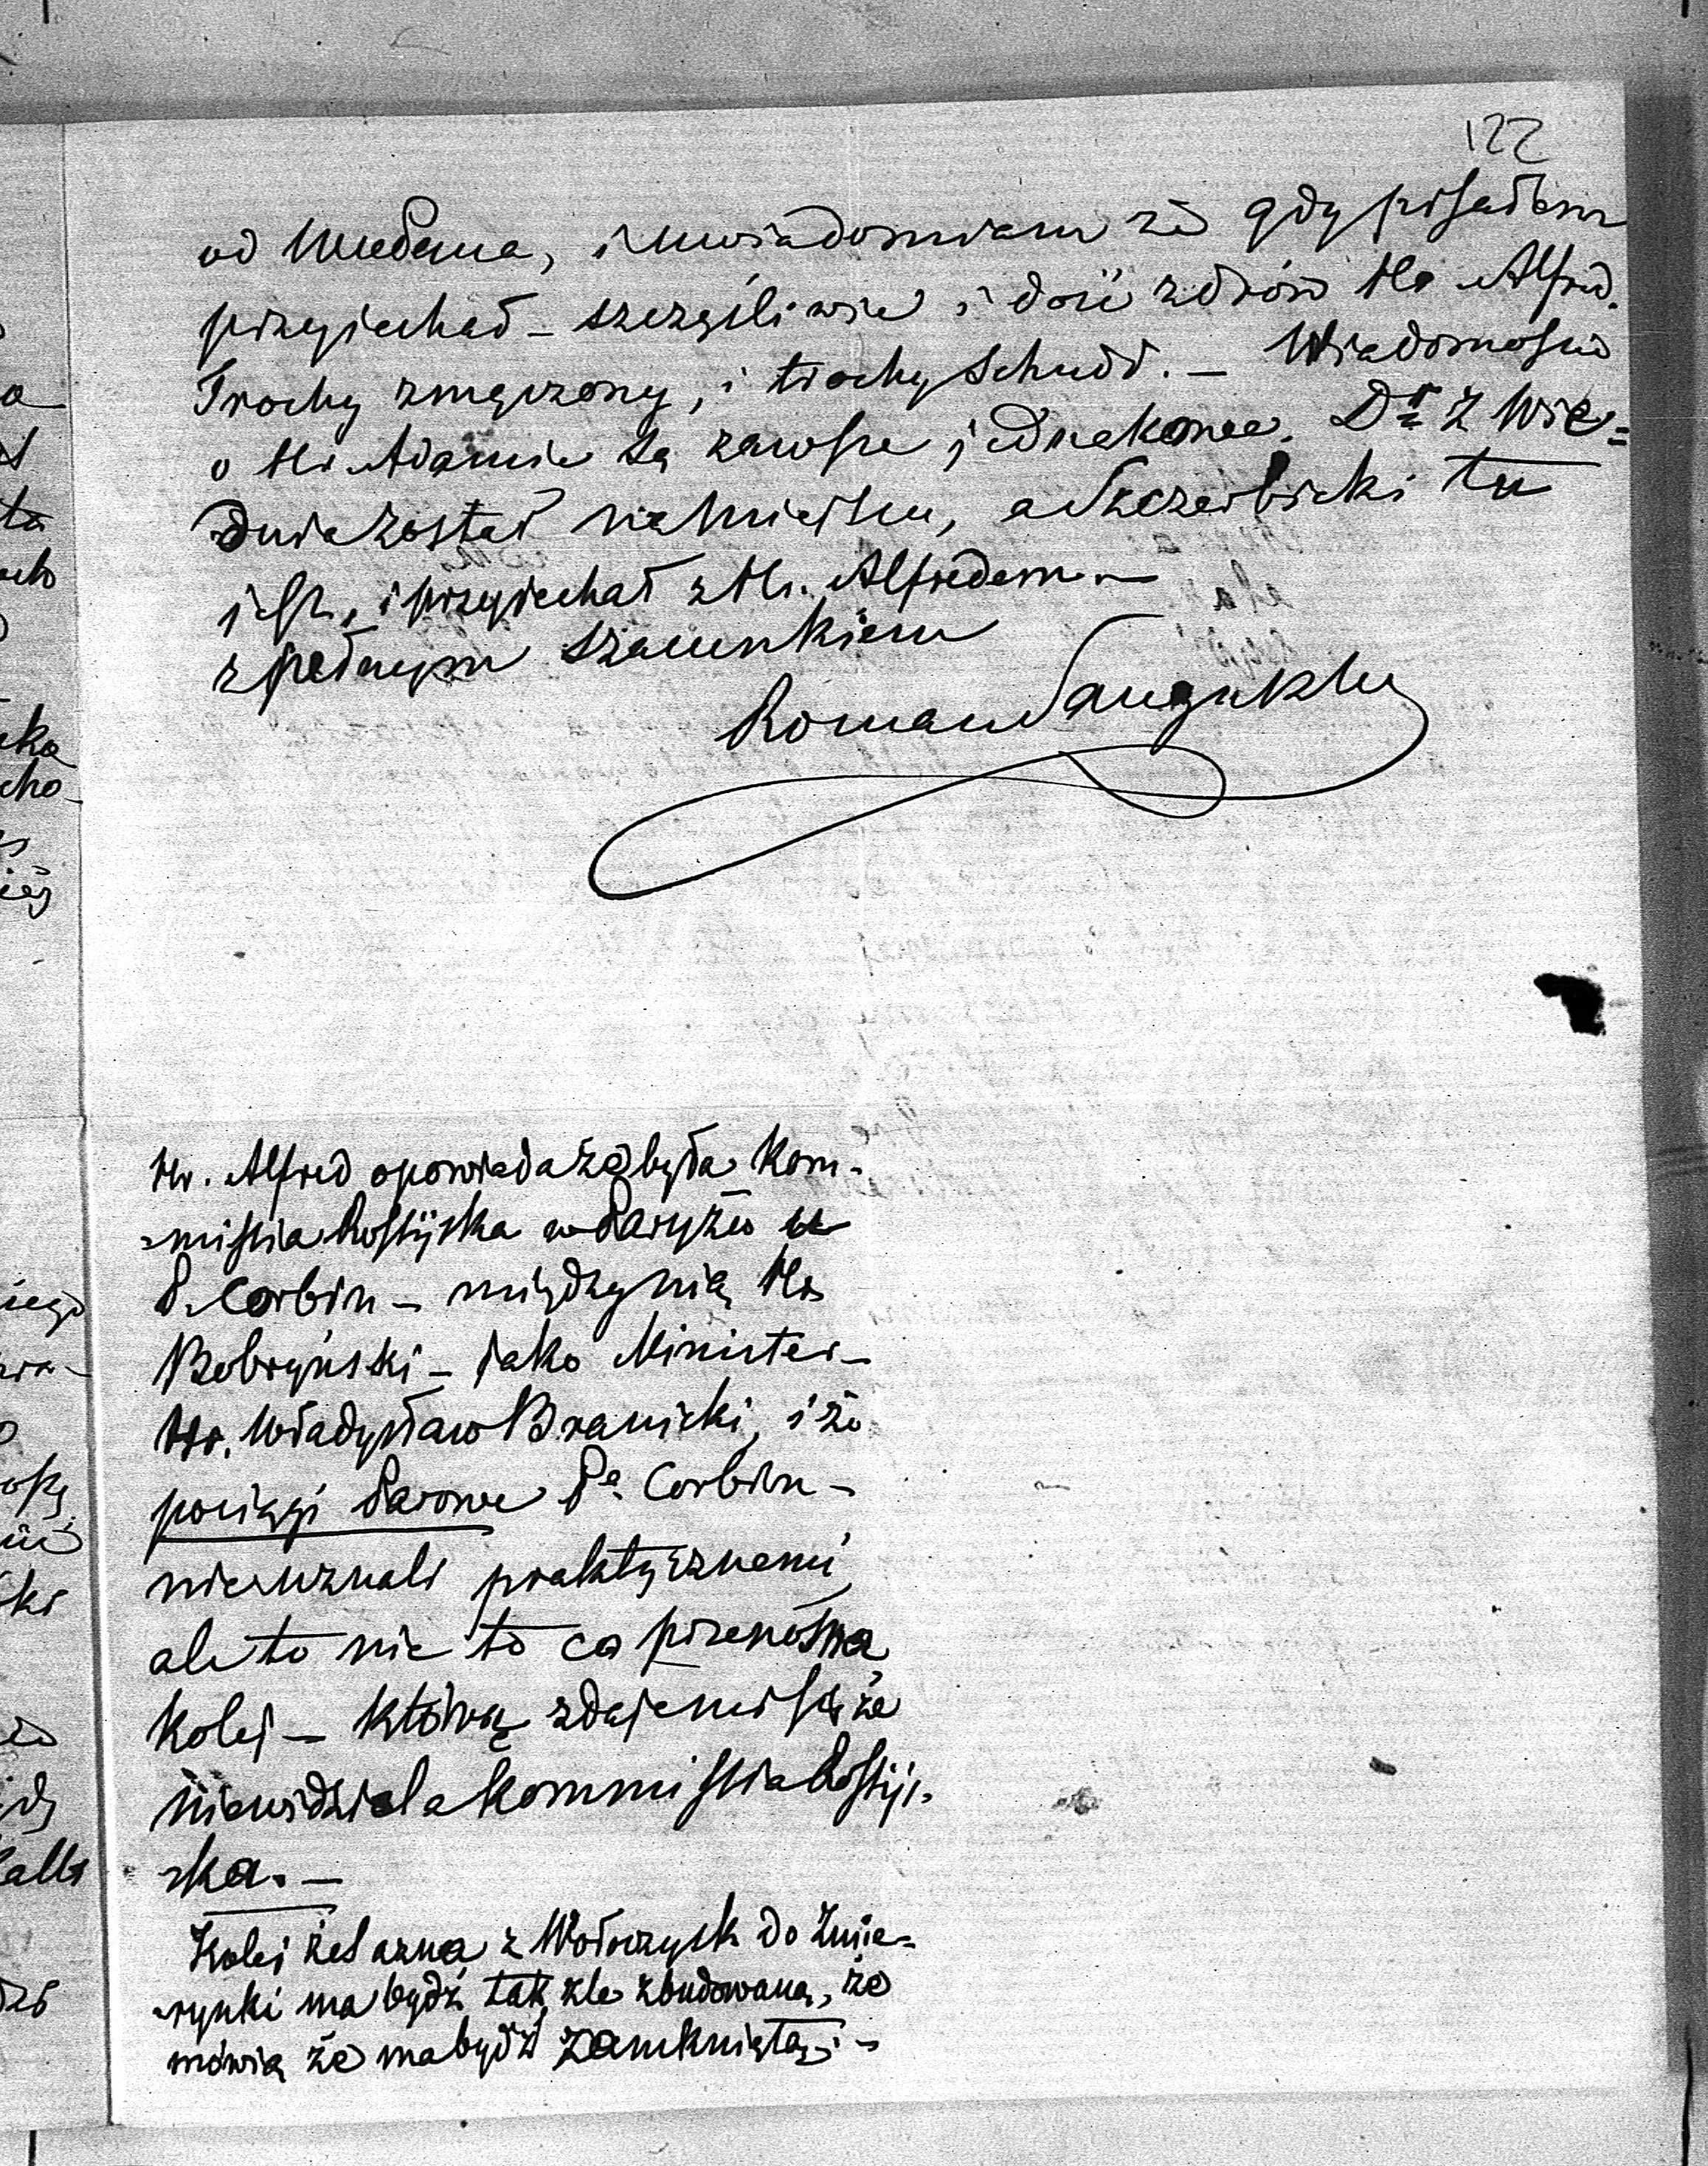 122
od, i uwiadomiam że gdy pisałem
przyjechał – szczęśliwie i dość zdrów Hr Alfred.
Trochę zmęczony, i trochę schudł. – Wiadomości
o Hr. Adamie są zawsze jednakowe. Dr z Wie=
dnia został na miejscu, a Szczerbicki tu
jest, i przyjechał z Hr. Alfredem –
z pełnym szacunkiem
Roman Sanguszko
Hr. Alfred opowiada że była Kom-
-missia Rossyjska w Paryżu u
P. Corbin – między nią Hr
Bobryński – jako Minister –
Hr. Władysław Branicki, i że
pociągi Parowe Pa Corbin –
nie uznali praktycznemi,
ale to nie to co przenośna
Kolej – którą zdaje mi się że
niewidziela Kommissia Rossyj-
-ska. –
Kolej żelazna z Wołoczysk do Żmie-
-rynki ma bydź tak źle zbudowaną, że
mówią że ma bydź zamkniętą; –